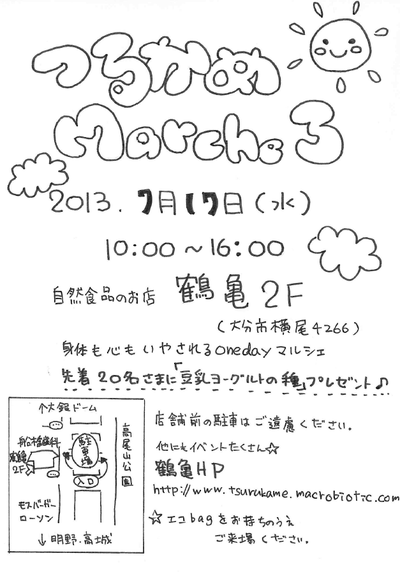 つるかめ
Marche 3
2013.7月17日(水)
10:00～16:00
自然食品のお店 鶴亀 2F
(大分市横尾4266)
身体も心もいやされるonedayマルシェ
先着20名さまに「豆乳ヨーグルトの種」プレゼント♪
↑大銀ドーム
鶴亀
2F
駐車場
入口
高尾山公園
モスバーガー
ローソン
↓明野・高城
店舗前の駐車はご遠慮ください。
他にもイベントたくさん☆
鶴亀HP
http://www.tsurukame.macrobiotic.com
☆エコbagをお持ちのうえ
ご来場ください。